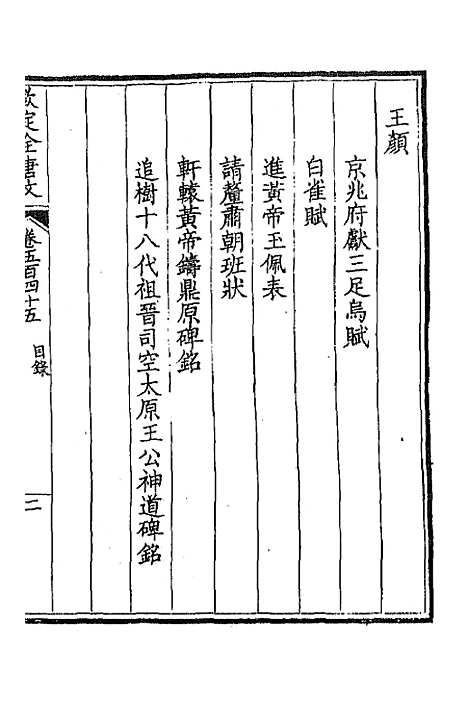 王顏
京兆府獻三足烏賦
白雀賦
進黃帝玉佩表
請釐肅朝班狀
軒轅黃帝鑄鼎原碑銘
追樹十八代祖晉司空太原王公神道碑銘
欽定全唐文
卷五百四十五
目錄
二